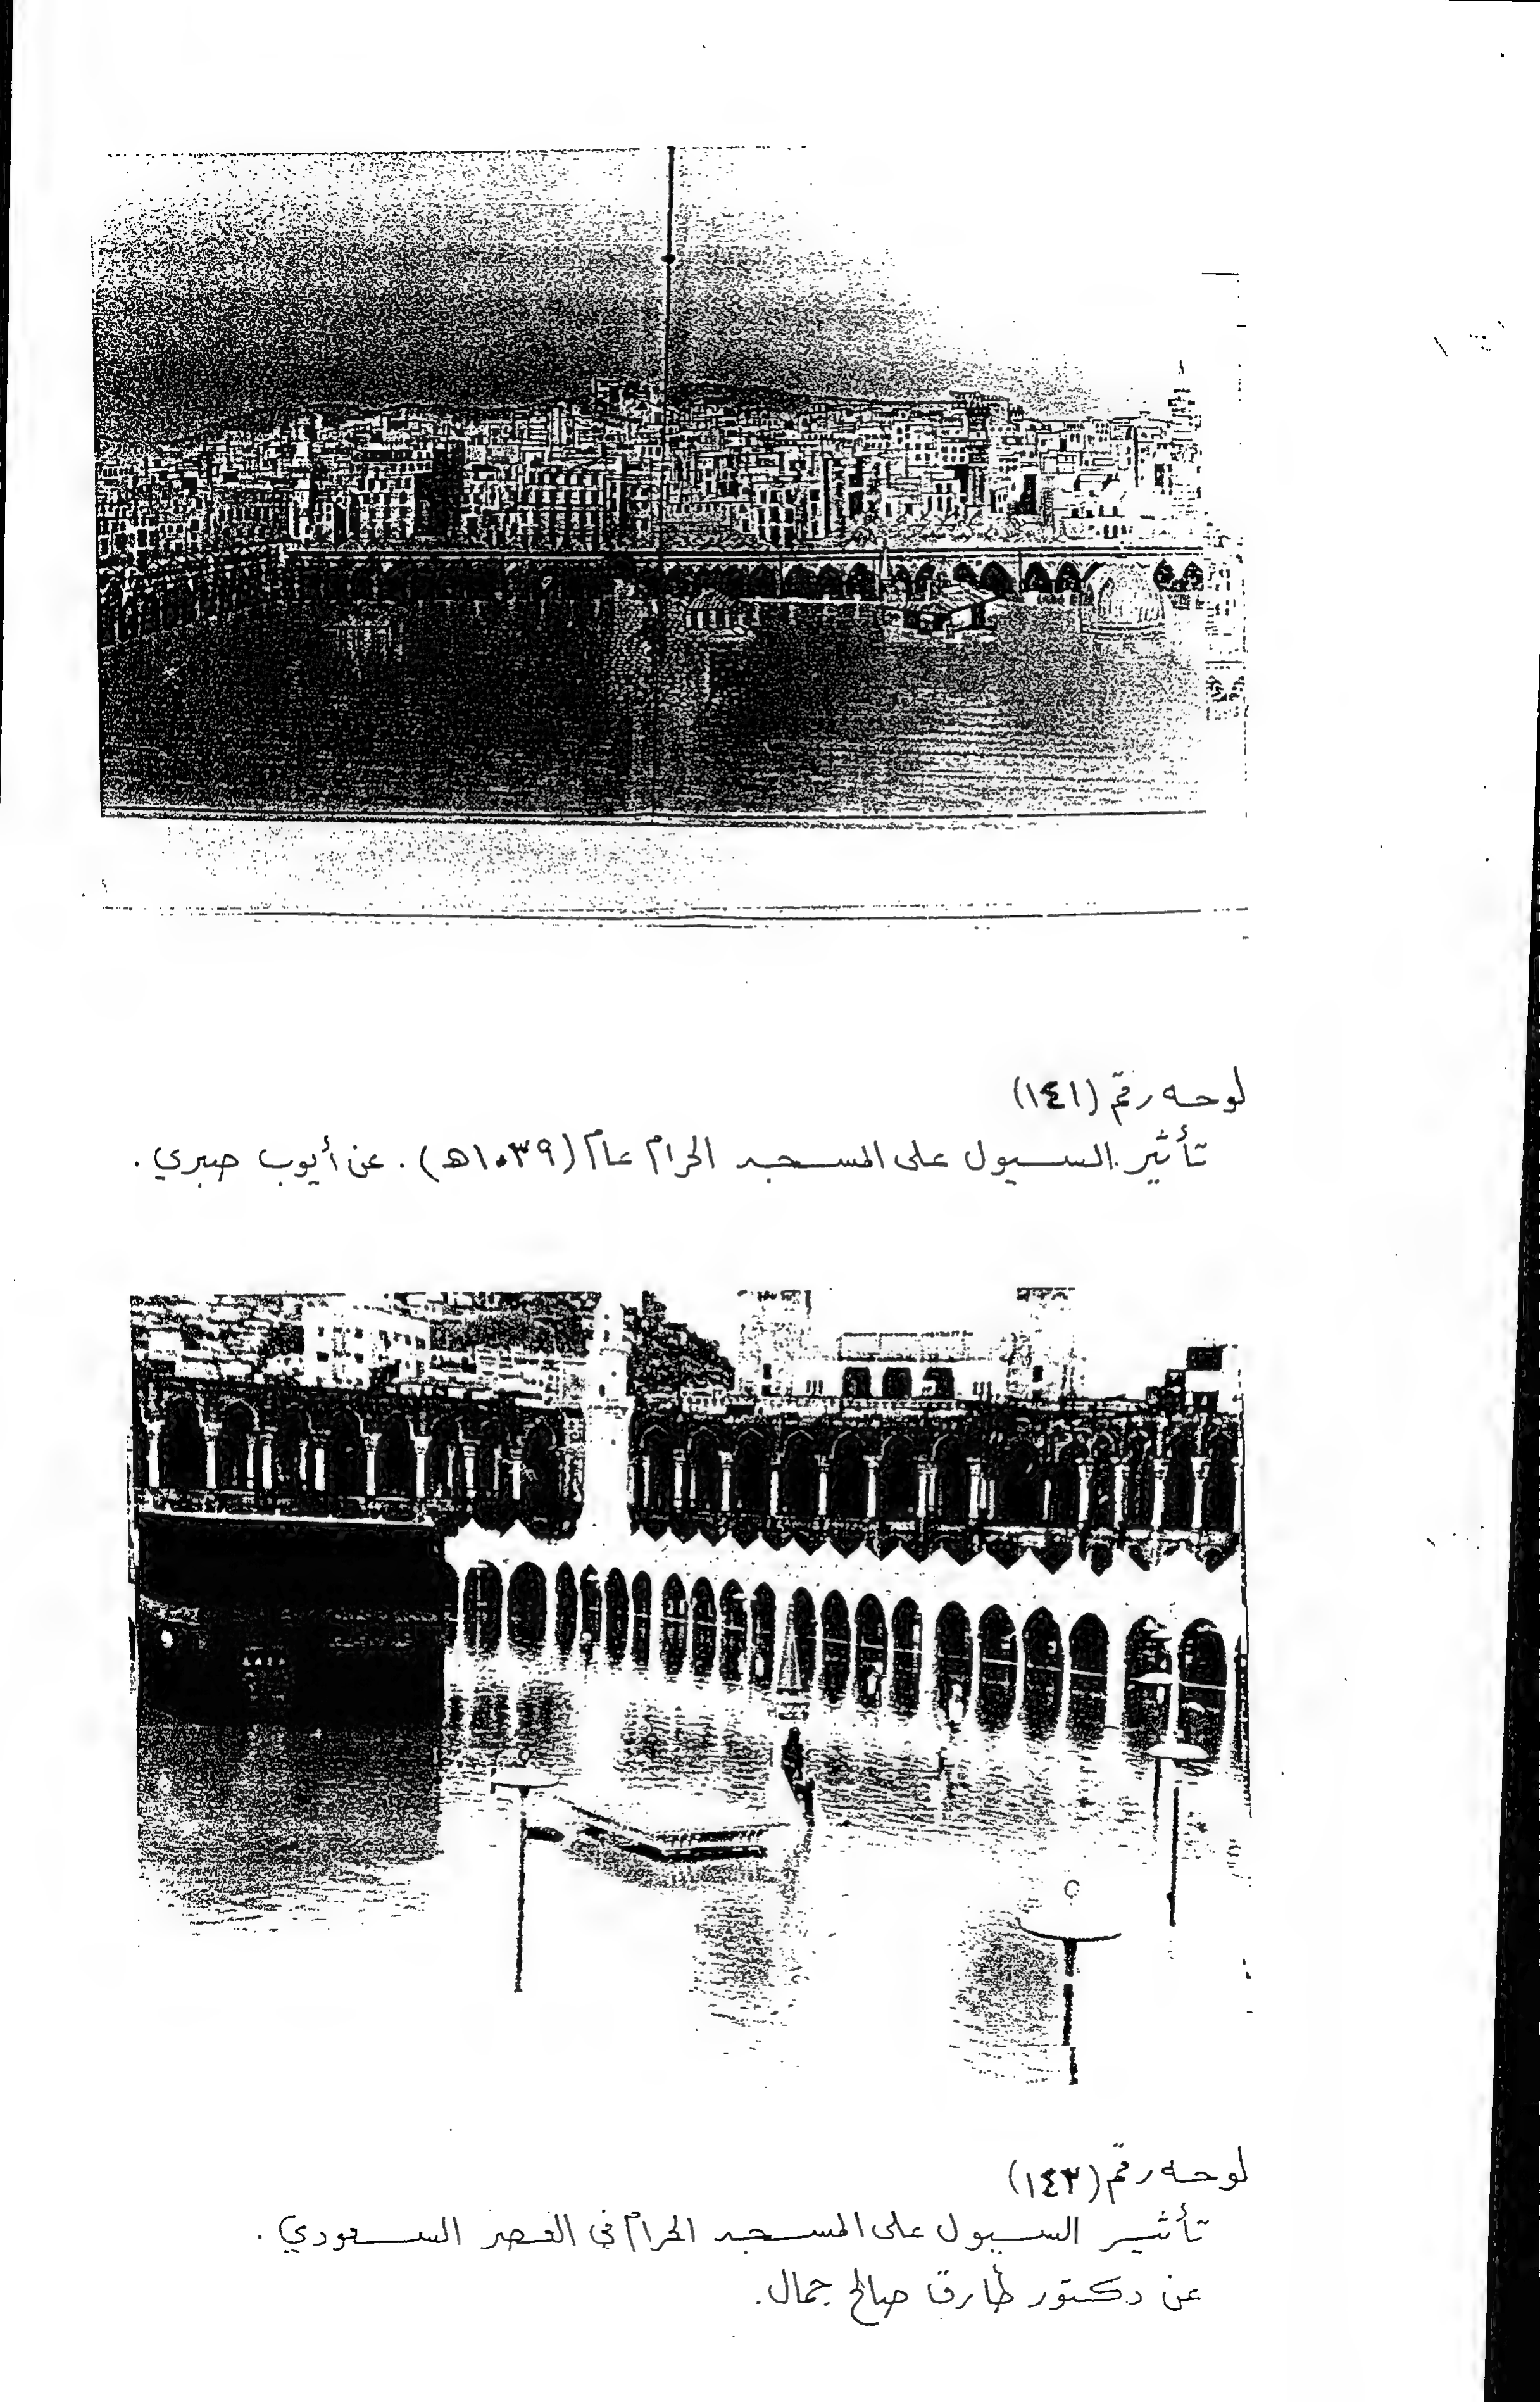 لوحه رقم (١٤١)
تأثير السيول على المسجد الحرام عام (١٠٣٩هـ). عن أيوب صبري.
لوحه رقم (١٤٢)
تأثير السيول على المسجد الحرام في العصر السعودي.
عن دكتور طارق صالح جمال.